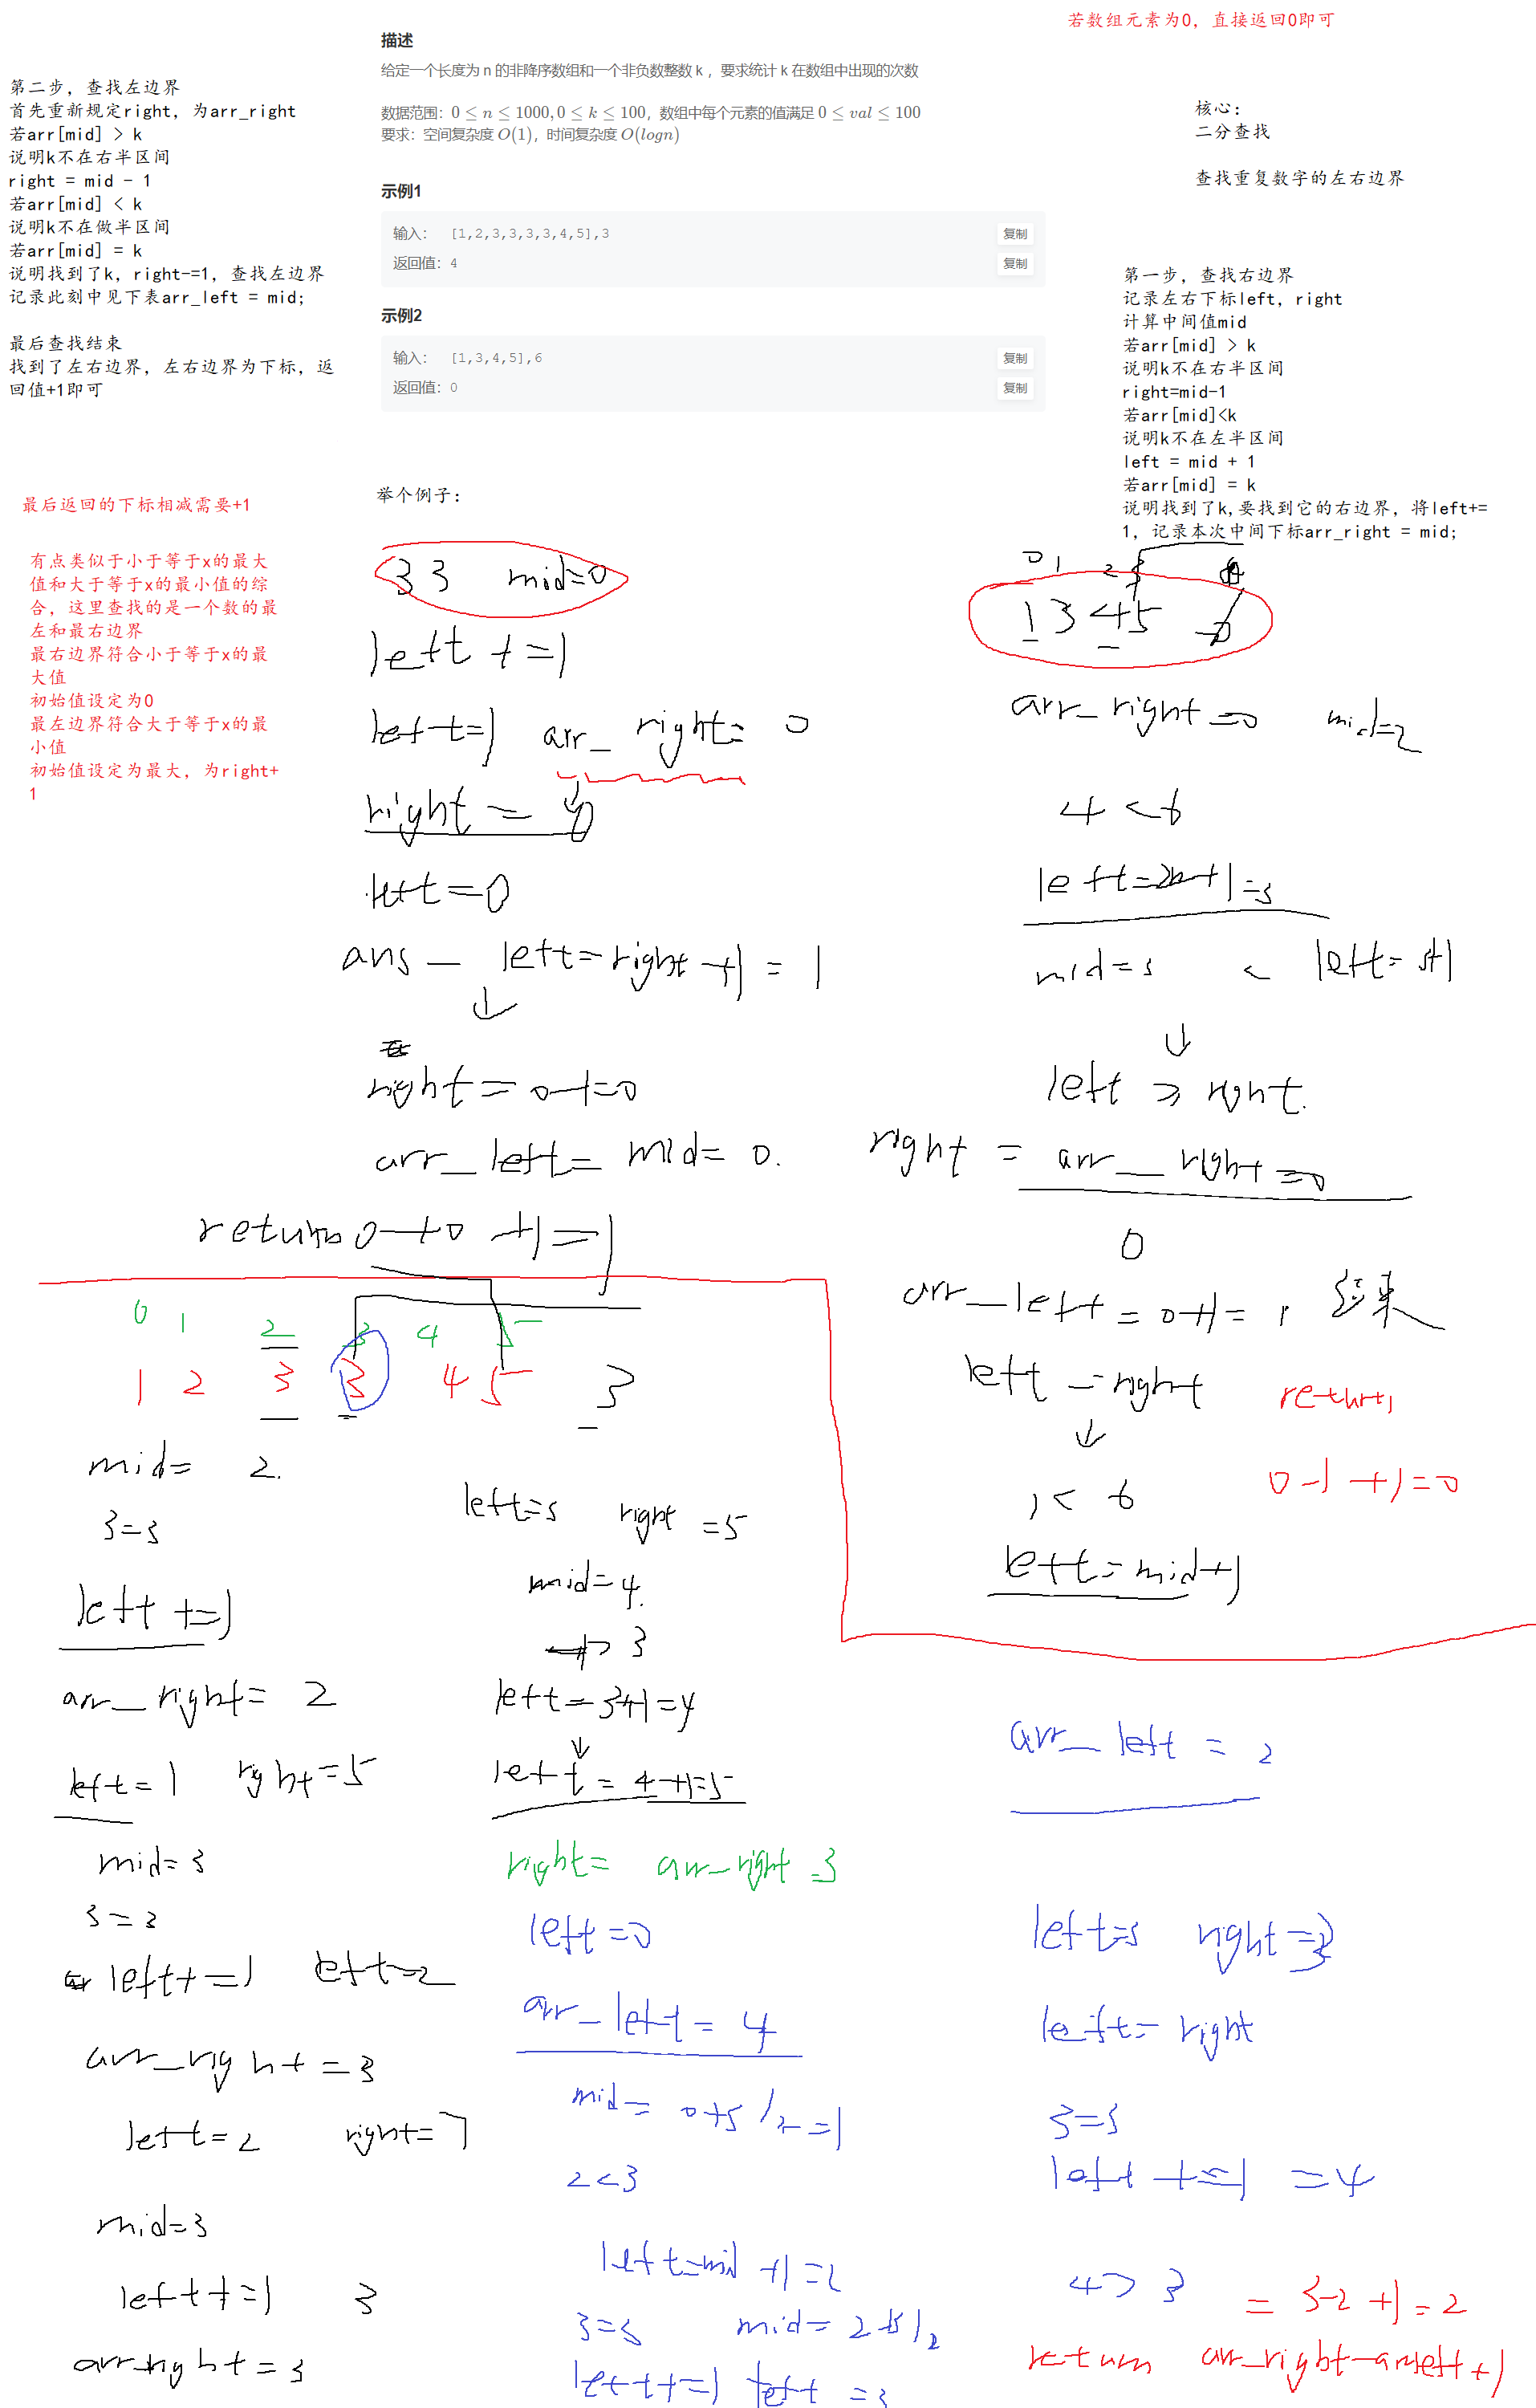 若数组元素为0，直接返回0即可
描述
给定一个长度为 n 的非降序数组和一个非负数整数 k ，要求统计 k 在数组中出现的次数
数据范围：0 ≤ n ≤ 1000, 0 ≤ k ≤ 100，数组中每个元素的值满足 0 ≤ val ≤ 100
要求：空间复杂度 O(1)，时间复杂度 O(logn)
示例1
输入： [1,2,3,3,3,3,4,5],3
复制
返回值：4
复制
示例2
输入： [1,3,4,5],6
复制
返回值：0
复制
第二步，查找左边界
首先重新规定right，为arr_right
若arr[mid] > k
说明k不在右半区间
right = mid - 1
若arr[mid] < k
说明k不在做半区间
若arr[mid] = k
说明找到了k，right-=1，查找左边界
记录此刻中见下表arr_left = mid;
最后查找结束
找到了左右边界，左右边界为下标，返
回值+1即可
核心：
二分查找
查找重复数字的左右边界
第一步，查找右边界
记录左右下标left，right
计算中间值mid
若arr[mid] > k
说明k不在右半区间
right=mid-1
若arr[mid]<k
说明k不在左半区间
left = mid + 1
若arr[mid] = k
说明找到了k,要找到它的右边界，将left+=
1，记录本次中间下标arr_right = mid;
最后返回的下标相减需要+1
有点类似于小于等于x的最大
值和大于等于x的最小值的综
合，这里查找的是一个数的最
左和最右边界
最右边界符合小于等于x的最
大值
初始值设定为0
最左边界符合大于等于x的最
小值
初始值设定为最大，为right+
1
举个例子：
3 3 mid=0
left +=1
left=1 arr_right= 0
right =
left=0
ans_left=right+1=1
right = 0-1=0
arr_left= mid= 0.
return 0-0 +1=1
0 1 2
1 3 4 5
arr_right=0 mid=2
4<6
mid=3 < left=3+1
left > right.
right = arr_right=0
0
arr_left = 0+1=1 结束
left = right
return
0-1+1=0
1< 6
left=mid+1
0 1 2 3 4 5
1 2 3 3 4 5 3
mid= 2.
3=3
left +=1
arr_right= 2
left=1 right=5
mid=3
3=3
left+=1 left=2
arr_right=3
left=2 right=
mid=3
left+=1 3
arr_right=3
left=3 right=5
mid=4.
> 3
left=3+1=4
left=4+1=5
right= arr_right=3
left=0
arr_left=4
mid= 0+3/2=1
2<3
left=mid+1=2
3=3 mid=2+3/2
left+=1 left=3
arr_left = 2
left=3 right=3
left=right
3=3
left+=1 =4
4>3
=3-2+1=2
return arr_right-arrleft+1